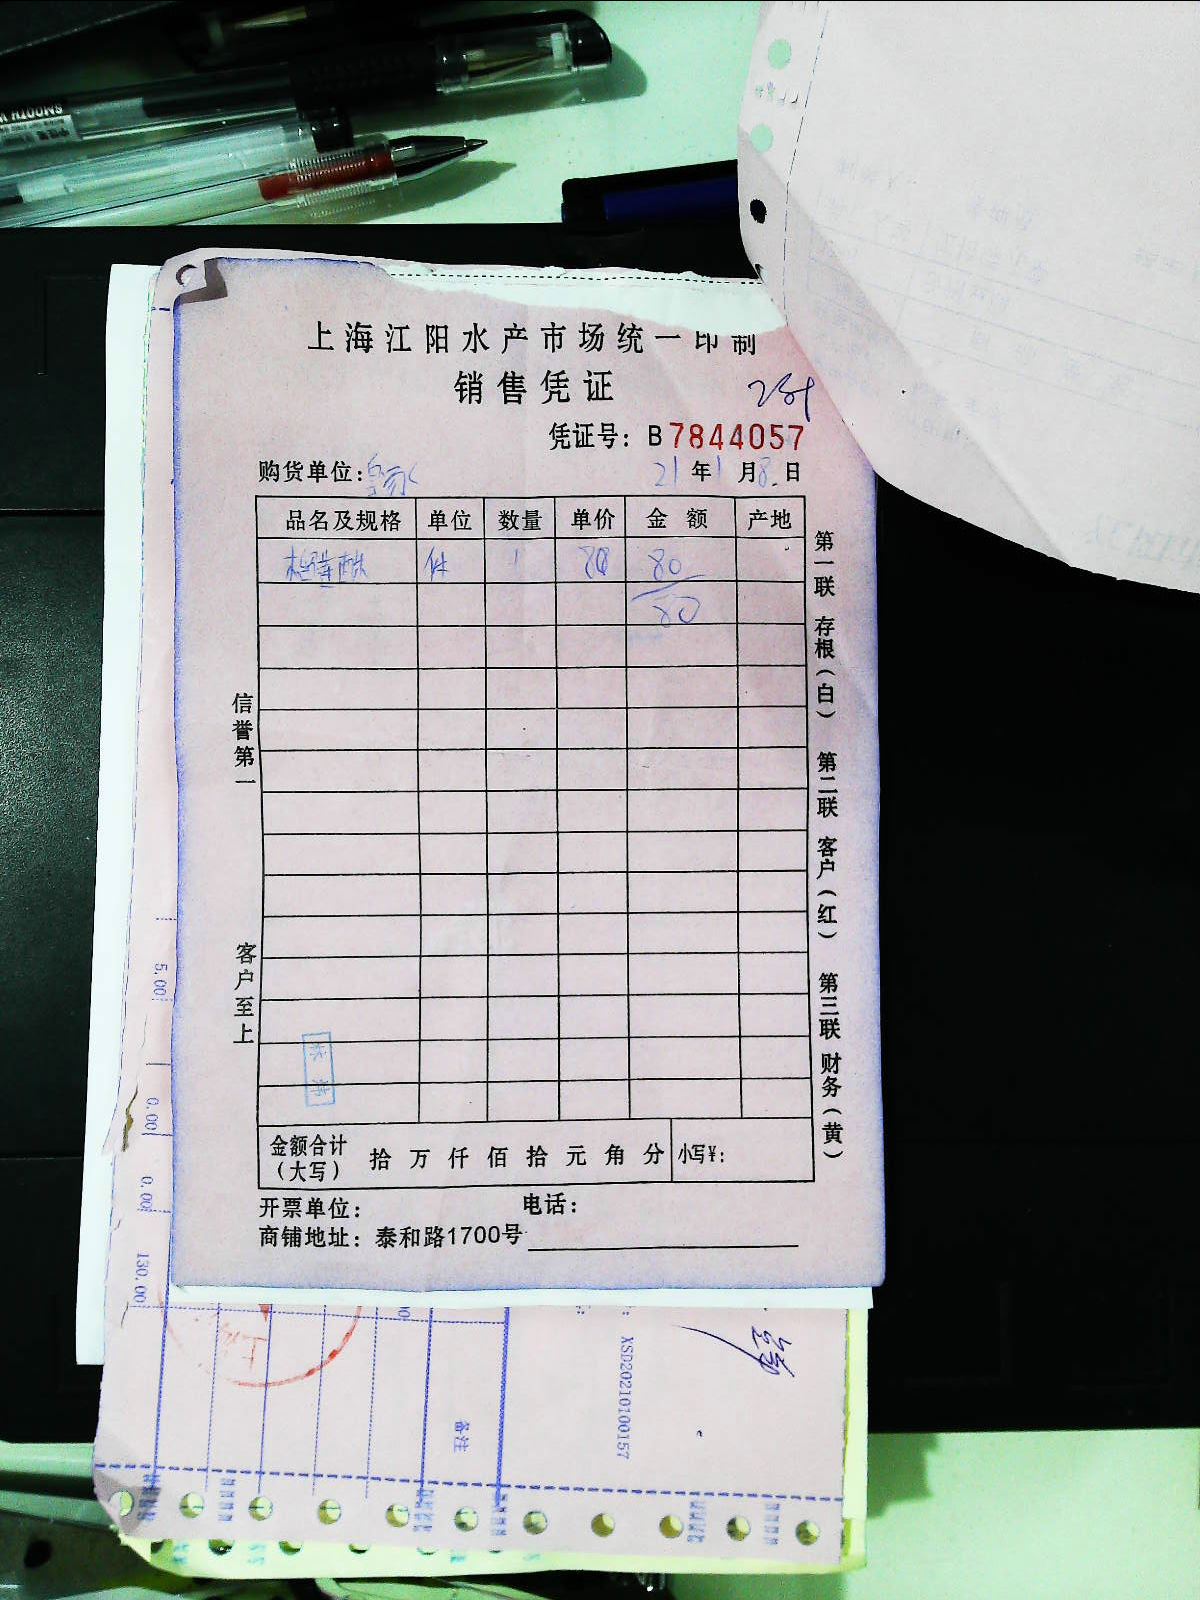 SMOOTH W
上海江阳水产市场统一印制
销售凭证
凭证号：B7844057
购货单位：
21年1月8日
品名及规格 单位 数量 单价 金额 产地
件 1 80 80
80
信誉第一
客户至上
第一联 存根（白） 第二联 客户（红） 第三联 财务（黄）
金额合计（大写） 拾 万 仟 佰 拾 元 角 分 小写¥：
开票单位： 电话：
商铺地址：泰和路1700号
5.00
0.00
0.00
130.00
备注
XSD20210100157